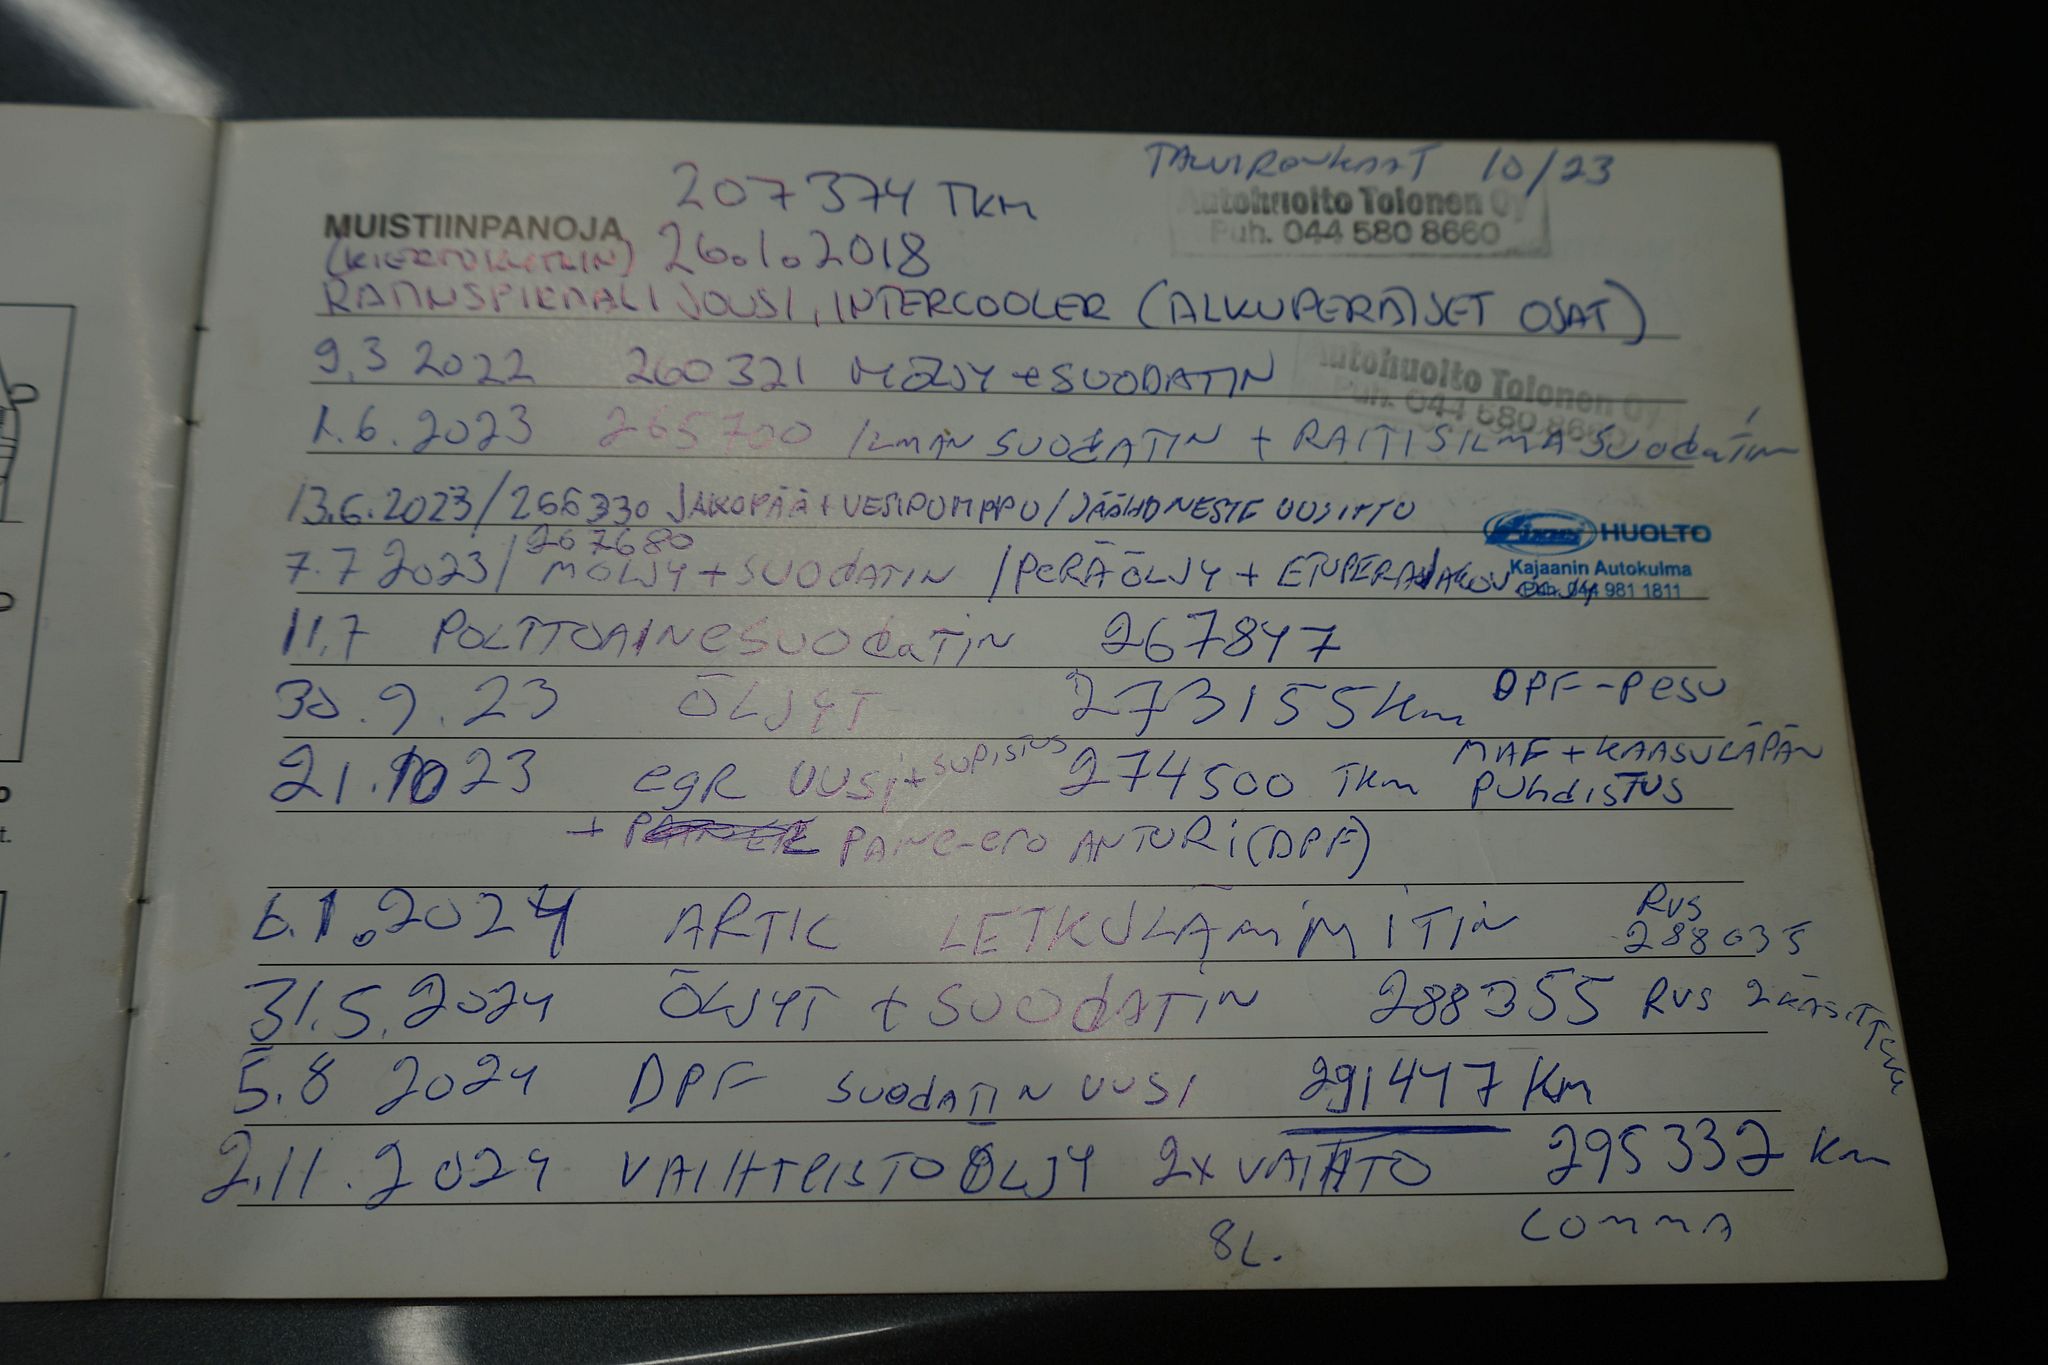 TALVIRENKAAT 10/23
207374 TKM
Autohuolto Tolonen Oy
Puh. 044 580 8660
MUISTIINPANOJA
26.1.2018
JOUSI, INTERCOOLER (ALKUPERÄISET OSAT)
9.3 2022 260321 MÖLJY + SUODATIN
Autohuolto Tolonen Oy
Puh. 044 580 8660
1.6.2023 265700 ILMAN SUODATIN + RAITISILMASUODATIN
13.6.2023/266330 JAKOPÄÄ + VESIPUMPPU/JÄÄHDNESTE UUSITTU
HUOLTO
Kajaanin Autokulma
Puh. 044 981 1811
267680
7.7 2023/ MÖLJY + SUODATIN /PERÄÖLJY +
11.7 POLTTOAINESUODATIN 267847
30.9.23 ÖLJYT 273155 Km DPF-PESU
21.10 23 EGR UUSI + SUPISTUS 274500 TKM MAF + KAASULÄPÄN
PUHDISTUS
+ PAINE-ERO ANTURI (DPF)
6.1.2024 ARTIC LETKULÄMMITIN RUS
288035
31.5.2024 ÖLJYT + SUODATIN 288355 RUS
5.8 2024 DPF SUODATIN UUSI 291447 Km
2.11.2024 VAIHTEISTOÖLJY 2x VAIHTO 295332 Km
8L. COMMA